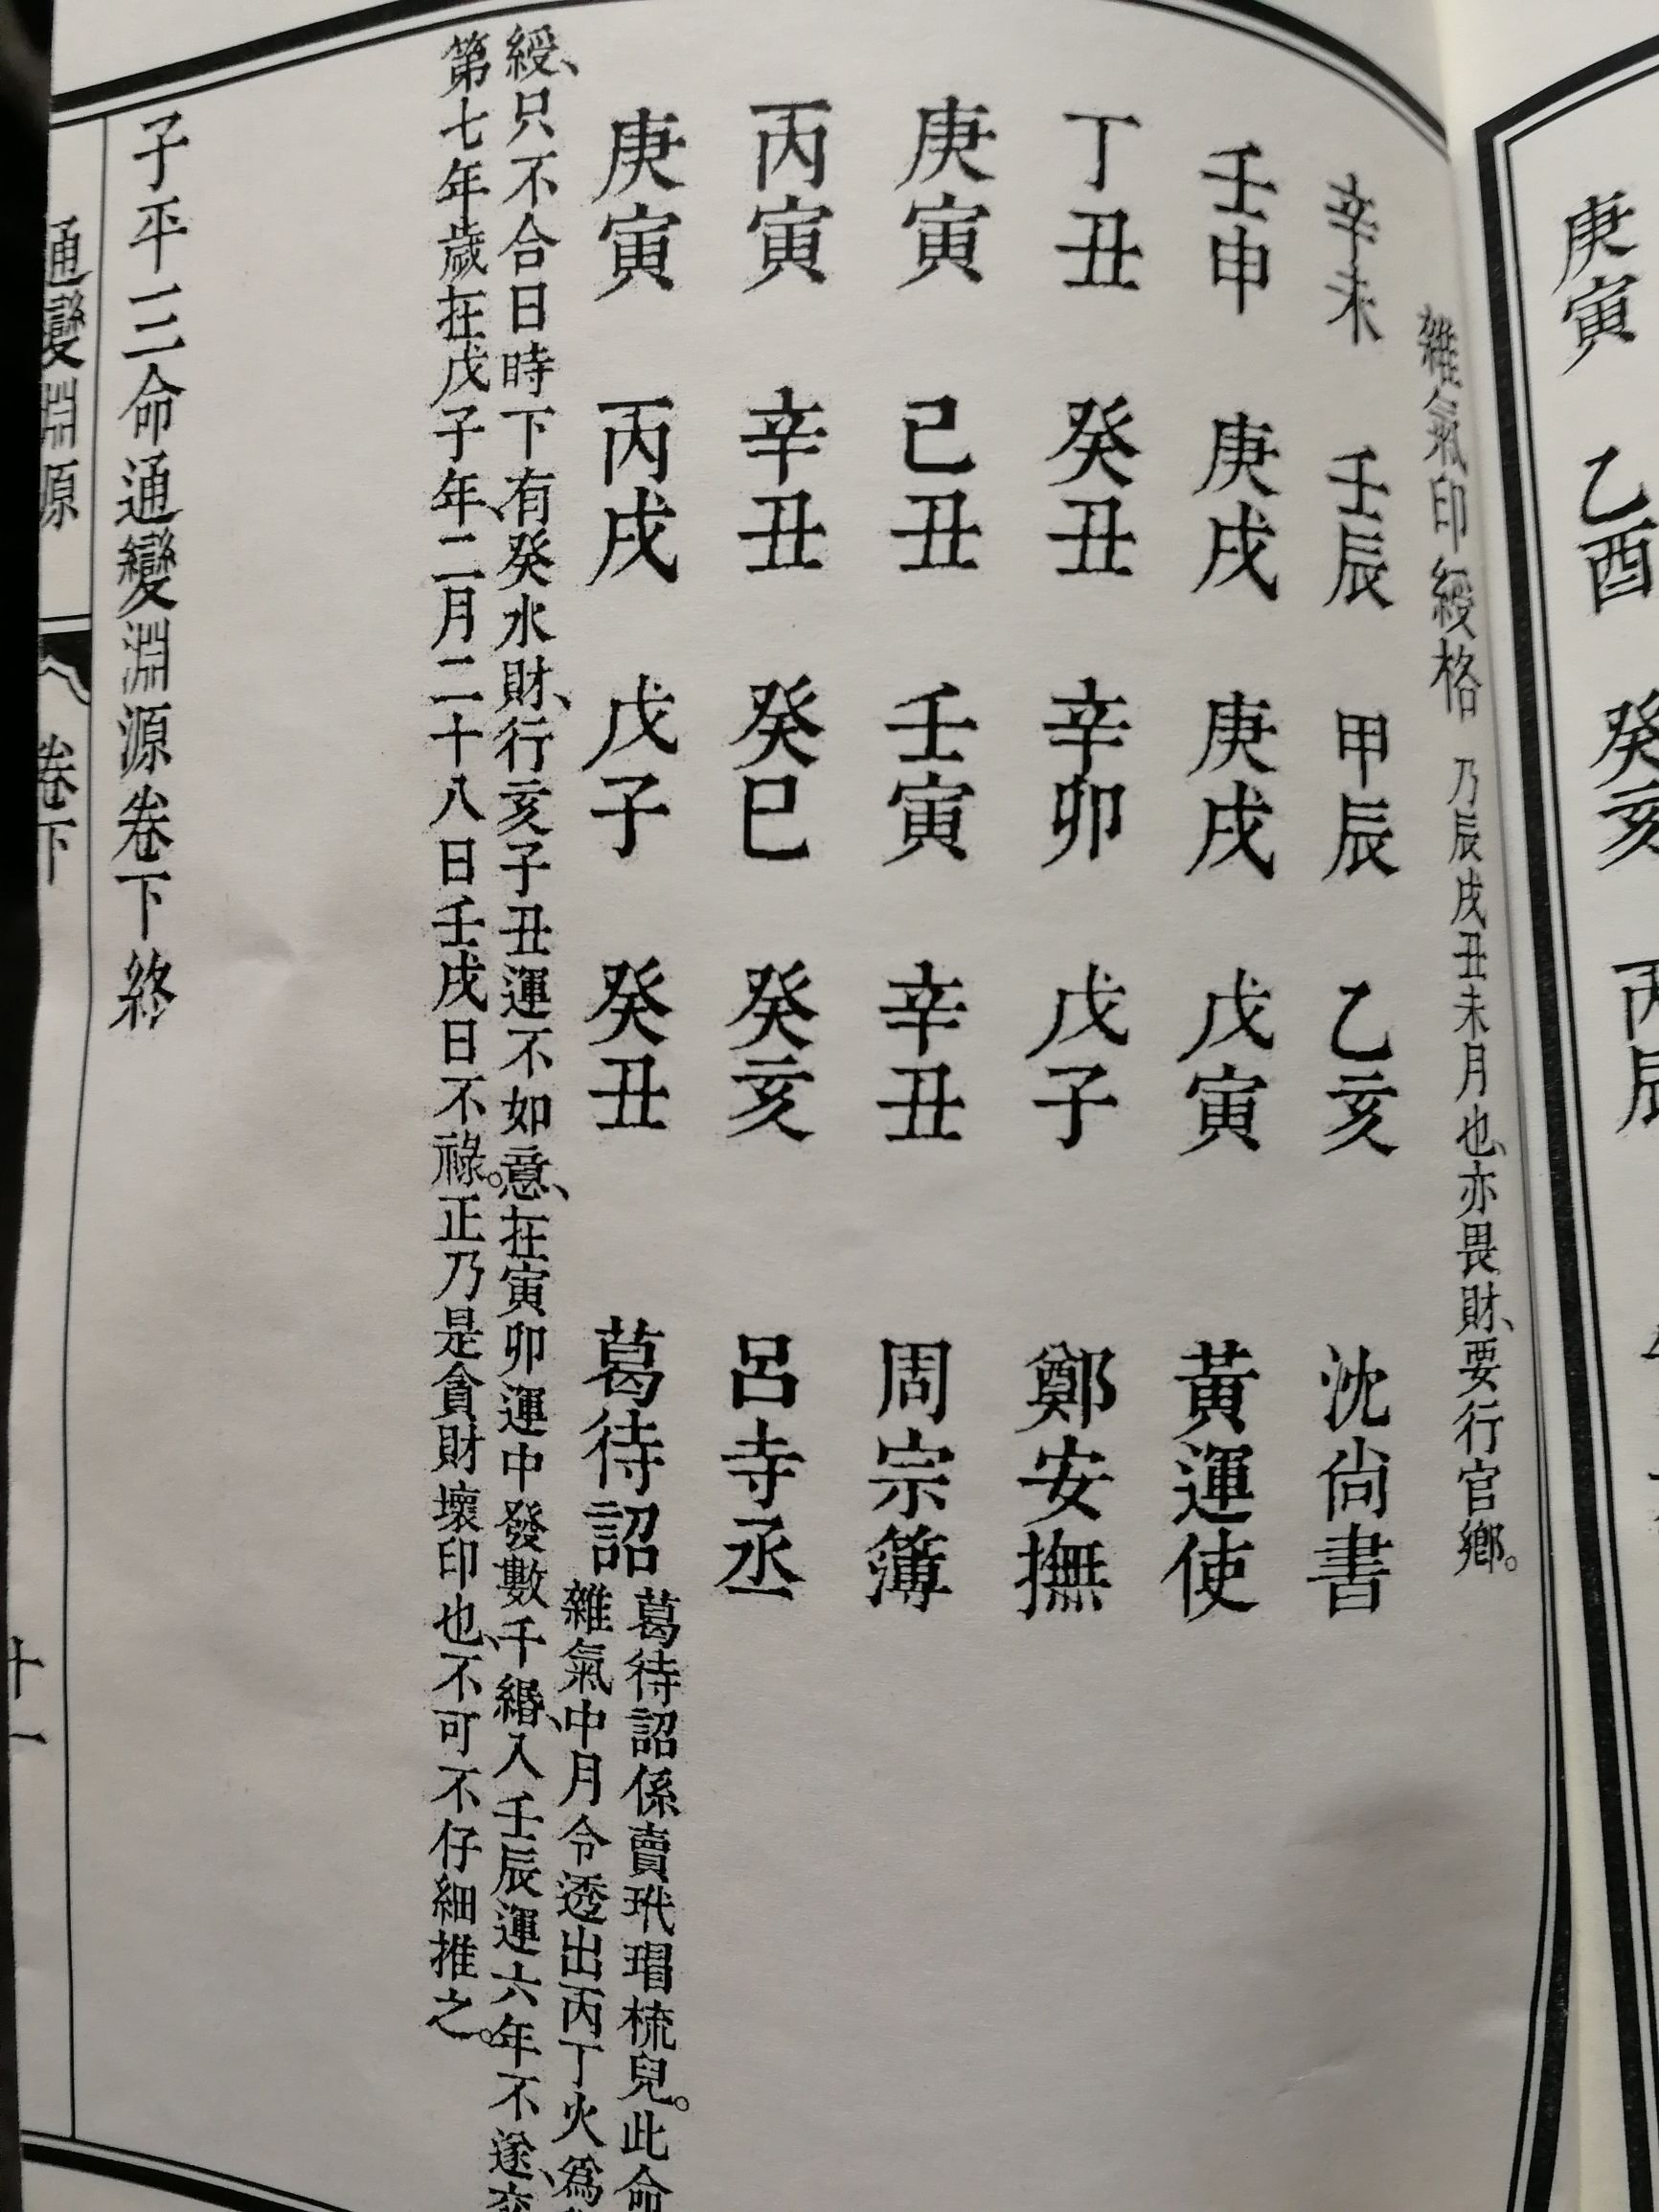 庚寅 乙酉 癸亥 丙辰
雜氣印綬格 乃辰戌丑未月也、亦畏財、要行官鄉。
辛未 壬辰 甲辰 乙亥 沈尙書
壬申 庚戌 庚戌 戊寅 黃運使
丁丑 癸丑 辛卯 戊子 鄭安撫
庚寅 己丑 壬寅 辛丑 周宗簿
丙寅 辛丑 癸巳 癸亥 呂寺丞
庚寅 丙戌 戊子 癸丑 葛待詔
葛待詔係賣玳瑁梳兒。此命
雜氣中月令透出丙丁火爲
綬、只不合日時下有癸水財、行亥子丑運不如意、在寅卯運中發數千緡、入壬辰運六年不遂、
第七年歲在戊子年、二月二十八日壬戌日不祿。正乃是貪財壞印也、不可不仔細推之。
子平三命通變淵源卷下終
通變淵源 卷下 十一